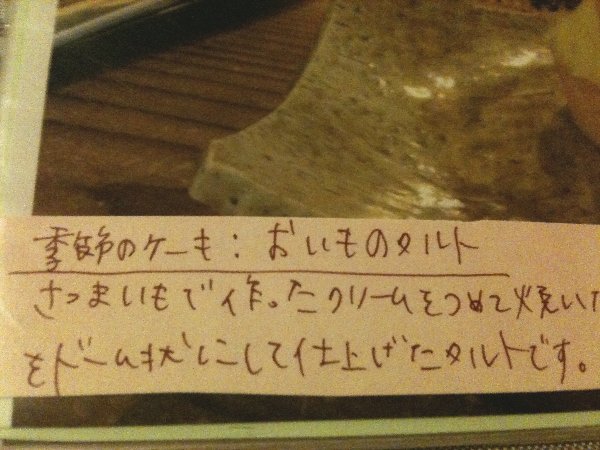 季節のケーキ：おいものタルト
さつまいもで作ったクリームをつめて焼いた
をドーム状にして仕上げたタルトです。